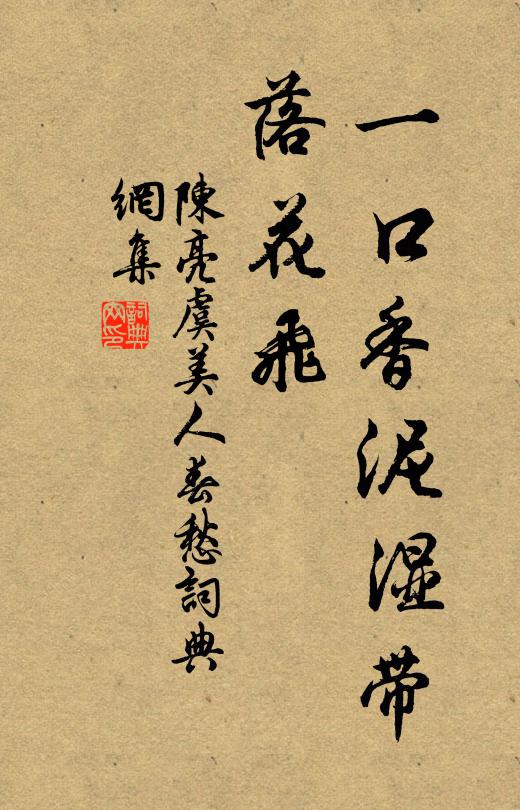 一口香泥湿帶
落花飛
陳亮虞美人春愁詞典
網集
詞典
网印